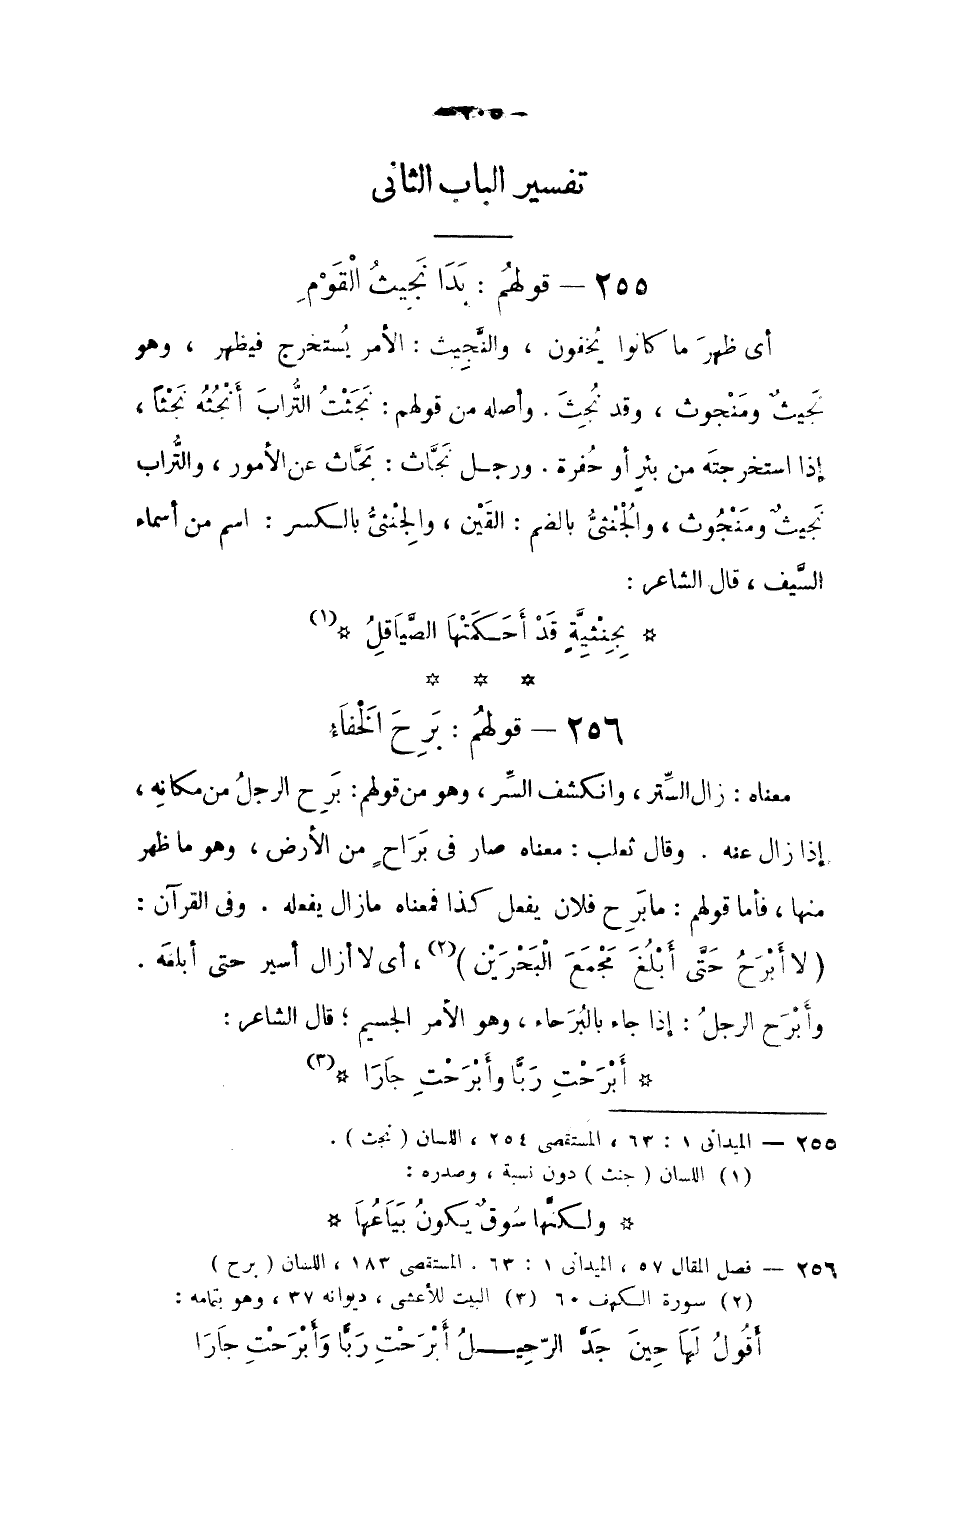 تفسير الباب الثانى
٢٥٥ — قولهُم : بَدَا نَجِيثُ الْقَوْمِ
أى ظهرَ ما كانوا يُخفون ، والنَّجِيث : الأمر يُستخرج فيظهر ، وهو
نَجيثٌ ومَنْجوث ، وقد نُجِثَ . وأصله من قولهم : نَجَثْتُ التُّرابَ أَنْجُثُه نَجْثاً ،
إذا استخرجتَه من بئرٍ أو حُفرة . ورجل نَجَّاث : بَحَّاث عن الأمور ، والتُّراب
نَجيثٌ ومَنْجُوث ، والْجُنْثىُّ بالضم : القَيْن ، والجِنْثىُّ بالكسر : اسم من أسماء
السَّيف ، قال الشاعر :
* بِجِنْثِيَّةٍ قَدْ أَحَكَمَتْهَا الصَّيَاقِلُ * (١)
* * *
٢٥٦ — قولهُم : بَرِحَ الْخَفاَءُ
معناه : زال السِّتر ، وانكشف السِّر ، وهو من قولهم : بَرِح الرجلُ من مكانِه ،
إذا زال عنه . وقال ثعلب : معناه صار فى بَرَاحٍ من الأرض ، وهو ما ظهر
منها ، فأما قولهم : مابَرِح فلان يفعل كذا فمعناه مازال يفعله . وفى القرآن :
( لا أَبْرَحُ حَتَّى أَبْلُغَ مَجْمَعَ الْبَحْرَيْن )(٢) ، أى لا أزال أسير حتى أبلغَه .
وأَبْرَح الرجلُ : إذا جاء بالبُرَحاء ، وهو الأمر الجسيم ؛ قال الشاعر :
* أَبْرَحْتِ رَبًّا وأَبْرَحْتِ جاَرَا * (٣)
٢٥٥ — الميدانى ١ : ٦٣ ، المستقصى ٢٥٤ ، اللسان ( نجث ) .
(١) اللسان ( جنث ) دون نسبة ، وصدره :
* ولكنَّها سُوقٌ يكونُ بَيَاعُهاَ *
٢٥٦ — فصل المقال ٥٧ ، الميدانى ١ : ٦٣ . المستقصى ١٨٣ ، اللسان ( برح )
(٢) سورة الكهف ٦٠ (٣) البيت للأعشى ، ديوانه ٣٧ ، وهو بتمامه :
أَقُولُ لَهَا حِينَ جَدَّ الرّحِيـــلُ أَبْرَحْتِ رَبًّا وَأَبْرَحْتِ جاَرَا